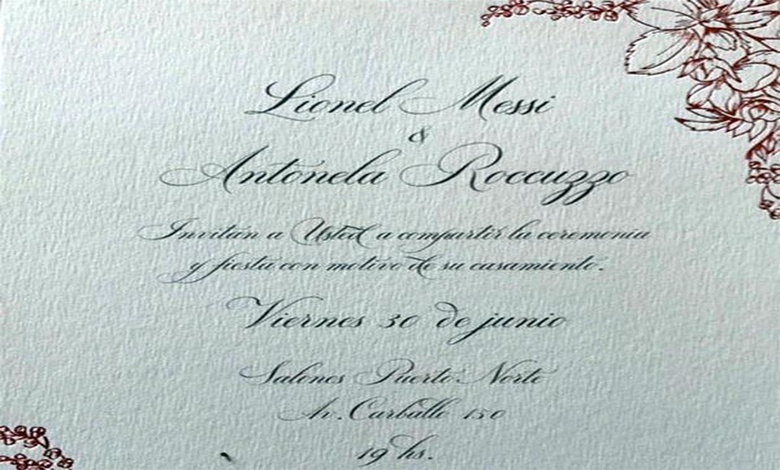 Lionel Messi
&
Antonela Roccuzzo
Invitan a Usted a compartir la ceremonia
y fiesta con motivo de su casamiento.
Viernes 30 de junio
Salones Puerto Norte
Av. Carballo 150
19 hs.